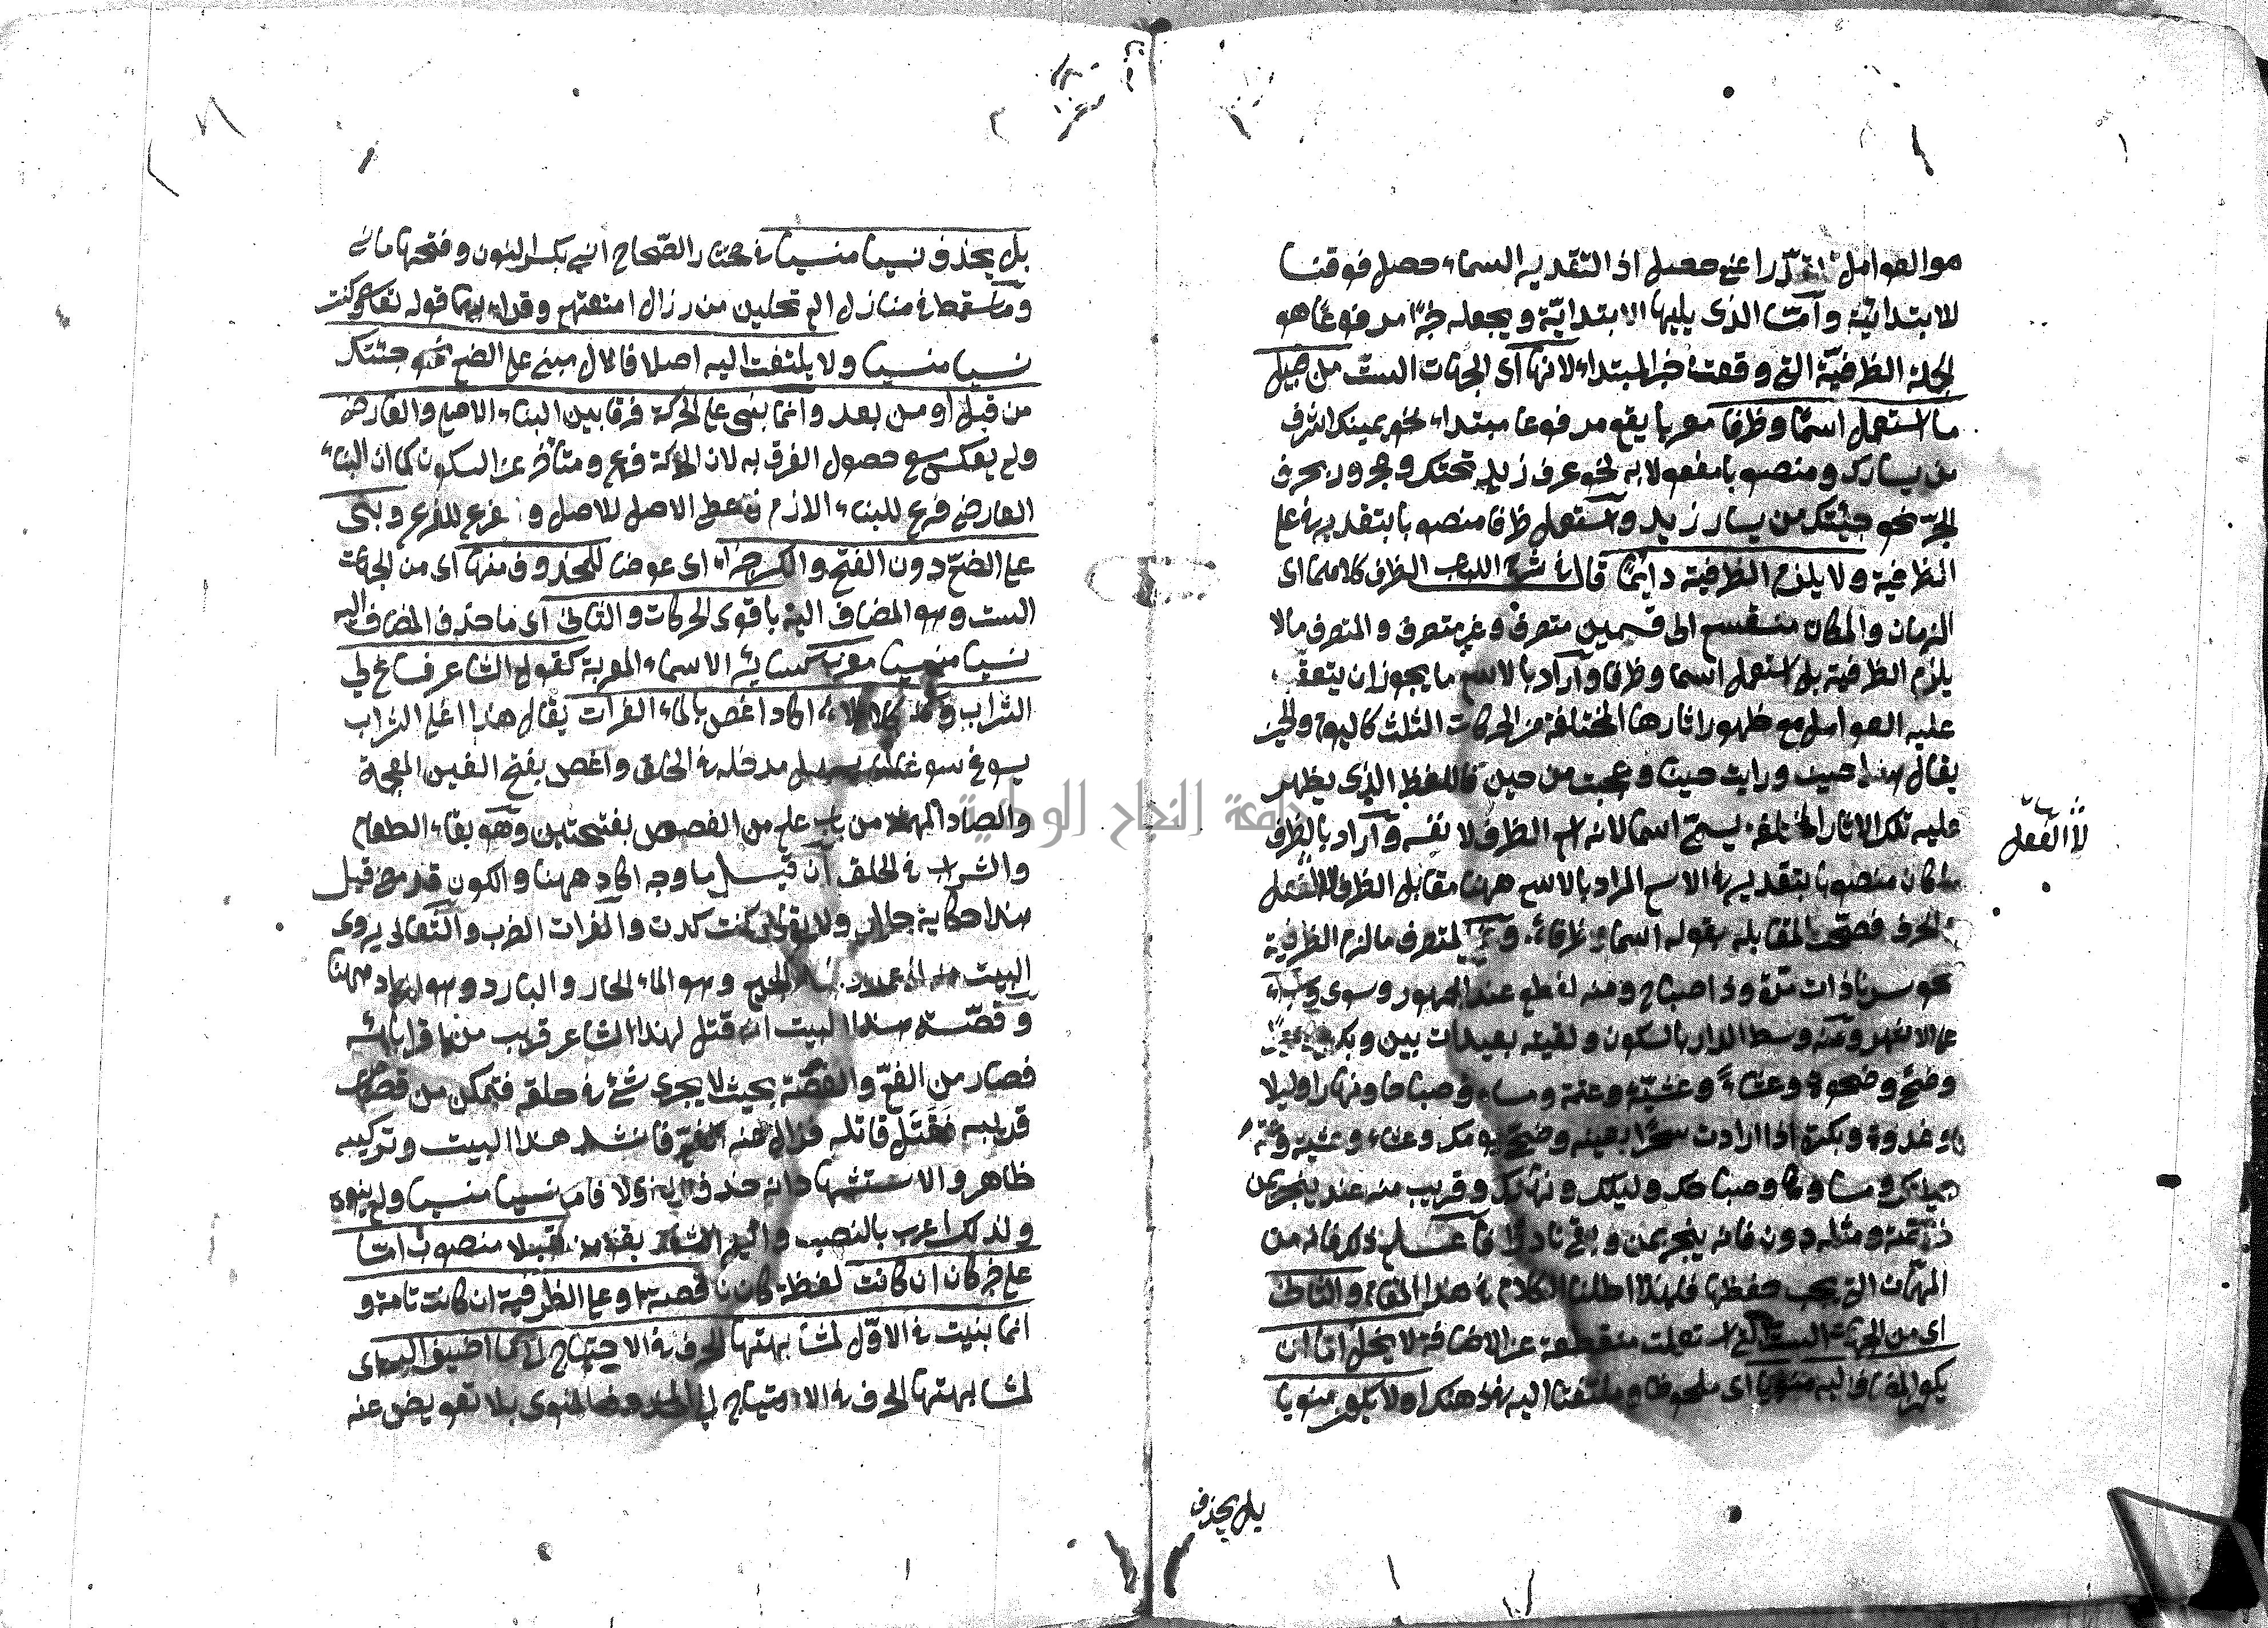 هو العوامل مقدرا اعنى حصل اذ التقدير السماء حصل فوقنا
للابتدائية وامت الذى يليها الابتدائية ويجعله خبرا مرفوعا هو
الجملة الظرفية التى وقعت خبر المبتداء لانها اى الجهات الست من قبيل
ما استعمل اسما وظرفا معربا يقع مرفوعا مبتداء نحو يمينك اشرف
من يسارك ومنصوبا مفعولا به نحو عرف زيد تحتك ومجرور بحرف
الجر نحو جئتك من يسار زيد واستعمل ظرفا منصوبا بتقدير في على
الظرفية ولا يلزم الظرفية دايما قال في شرح اللباب الظرف كلاهما اى
الزمان والمكان منقسم الى قسمين متصرف وغير متصرف والمتصرف ما لا
يلزم الظرفية بل استعمل اسما وظرفا واراد بالاسم ما يجوز ان يتعقب
عليه العوامل مع ظهور اثارها المختلفة من الحركات الثلث كاليوم والحين
يقال هذا حين ورايت حينا وعجبت من حين فاللفظ الذى يظهر
عليه تلك الاثار المختلفة يسمى اسما لانه اسم الظرف لا نفسه واراد بالظرف
ما كان منصوبا بتقدير في الاسم المراد بالاسم ههنا مقابل الظرف لا الفعل
والحرف فصحت المقابلة بقوله اسما وظرفا وغير المتصرف ما لزم الظرفية
نحو سرنا ذات مرة وذا صباح ومنه لفظ عند الجمهور وسوى
على الاشهر ومنه وسط الدار بالسكون ولقيته بعيدات بين وبكرا
وضحى وضحوة وعشاء وعشية وعتمة ومساء وصباحا ونهارا وليلا
وغدوة وبكرة اذا ارادت سحرا بعينه وضحى يومك وعشاء وعشية وعتمة
ليلتك ومساءها وصباحك وليلك ونهارك وقريب منه عند ينجر بمن
ومثله دون فانه ينجر بمن وبفى نادرا فاعلم ذلك فانه من
المهمات التى يجب حفظها فلهذا اطلنا الكلام في هذا المقام والثانى
اى من الجهات الست التى استعملت منقطعة عن الاضافة لا يخلو اما ان
يكون المضاف اليه منويا اى ملحوظا وملتفتا اليه في ذهنك او لا يكون منويا
لا الفعل
بل يحذف
بل يحذف نسيا منسيا في مختار الصحاح النسى بكسر النون وفتحها ما
وما سقط في منازل المرتحلين من رزال امتعتهم وقرئ بهما قوله تعالى وكنت
نسيا منسيا ولا يلتفت اليه اصلا فالاول مبنى على الضم نحو جئتك
من قبل او من بعد وانما بنى على الحركة فرقا بين البناء الاصلى والعارض
ولم يعكس مع حصول الفرق به لان الحركة فرع ومتأخر عن السكون كما ان البناء
العارض فرع للبناء الازم فاعطى الاصل للاصل والفرع للفرع وبنى
على الضم دون الفتح والكسر جبرا اى عوضا للمحذوف منها اى من الجهات
الست وهو المضاف اليه باقوى الحركات والثانى اى ما حذف المضاف اليه
نسيا منسيا معرب كسائر الاسماء المعربة كقول الشاعر فساغ لي
الشراب وكنت قبلا اكاد اغص بالماء الفرات يقال هذا اعلى التراب
يسوغ سوغا اى سهل مدخله في الحلق واغص بفتح الغين المعجمة
والصاد المهملة من باب علم من الغصص بفتحتين وهو بقاء الطعام
والشراب في الحلق ان قيل ما وجه اكاد ههنا والكون قد مضى قبل
هذا حكاية حال ولا يقال كنت كدت والفرات العذب والثعالى يروى
البيت بالماء الحميم وهو الماء الحار والبارد وهو المراد ههنا
وقصة هذا البيت انه قتل لهذا الشاعر قريب من اقربائه
فصار من الغم والغصة بحيث لا يجرى شئ في حلقه فتمكن من قصاص
قريبه فقتل قاتله فزال عنه الغم فانشد هذا البيت وتركيبه
ظاهر والاستشهاد انه حذف المضاف نسيا منسيا ولم ينوه
ولذلك اعرب بالنصب واليه اشار بقوله قبلا منصوب اما
على خبر كان ان كانت لفظة كان ناقصة او على الظرفية ان كانت تامة و
انما بنيت في الاول لمشابهتها الحرف في الاحتياج الى ما اضيف اليه اى
لمشابهتها الحرف في الاحتياج الى المحذوف المنوى بلا تعويض عنه
جامعة النجاح الوطنية